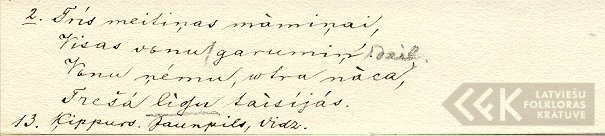 2. Trīs meitiņas māmiņai,
Visas vonu garumiņ
Vonu ņēmu, otra nāca,
Trešā līgu taisijās.
13. Ķippurs. Jaunpils, Vidz.
LATVIEŠU
FOLKLORAS
KRĀTUVE